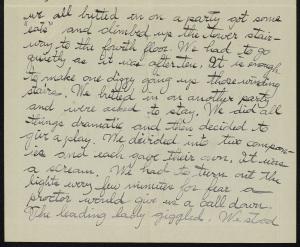 we all butted in on a party got some
"eats" and climbed up the tower stair-
way to the fourth floor. We had to go
quietly as it was after ten. It is enough
to make one dizzy going up those winding
stairs. We butted in on another party
and were asked to stay. We did all
things dramatic and then decided to
give a play. We devided into two compan-
ies and each gave their own. It was
a scream. We had to turn out the
lights every few minutes for fear a
proctor would give us a call down.
The leading lady giggled. We stood